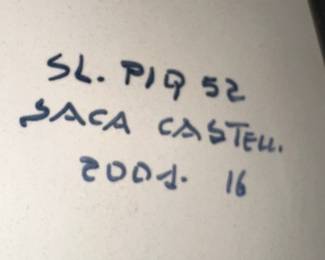 SL. PIQ 52
SACA CASTELL.
2001. 16